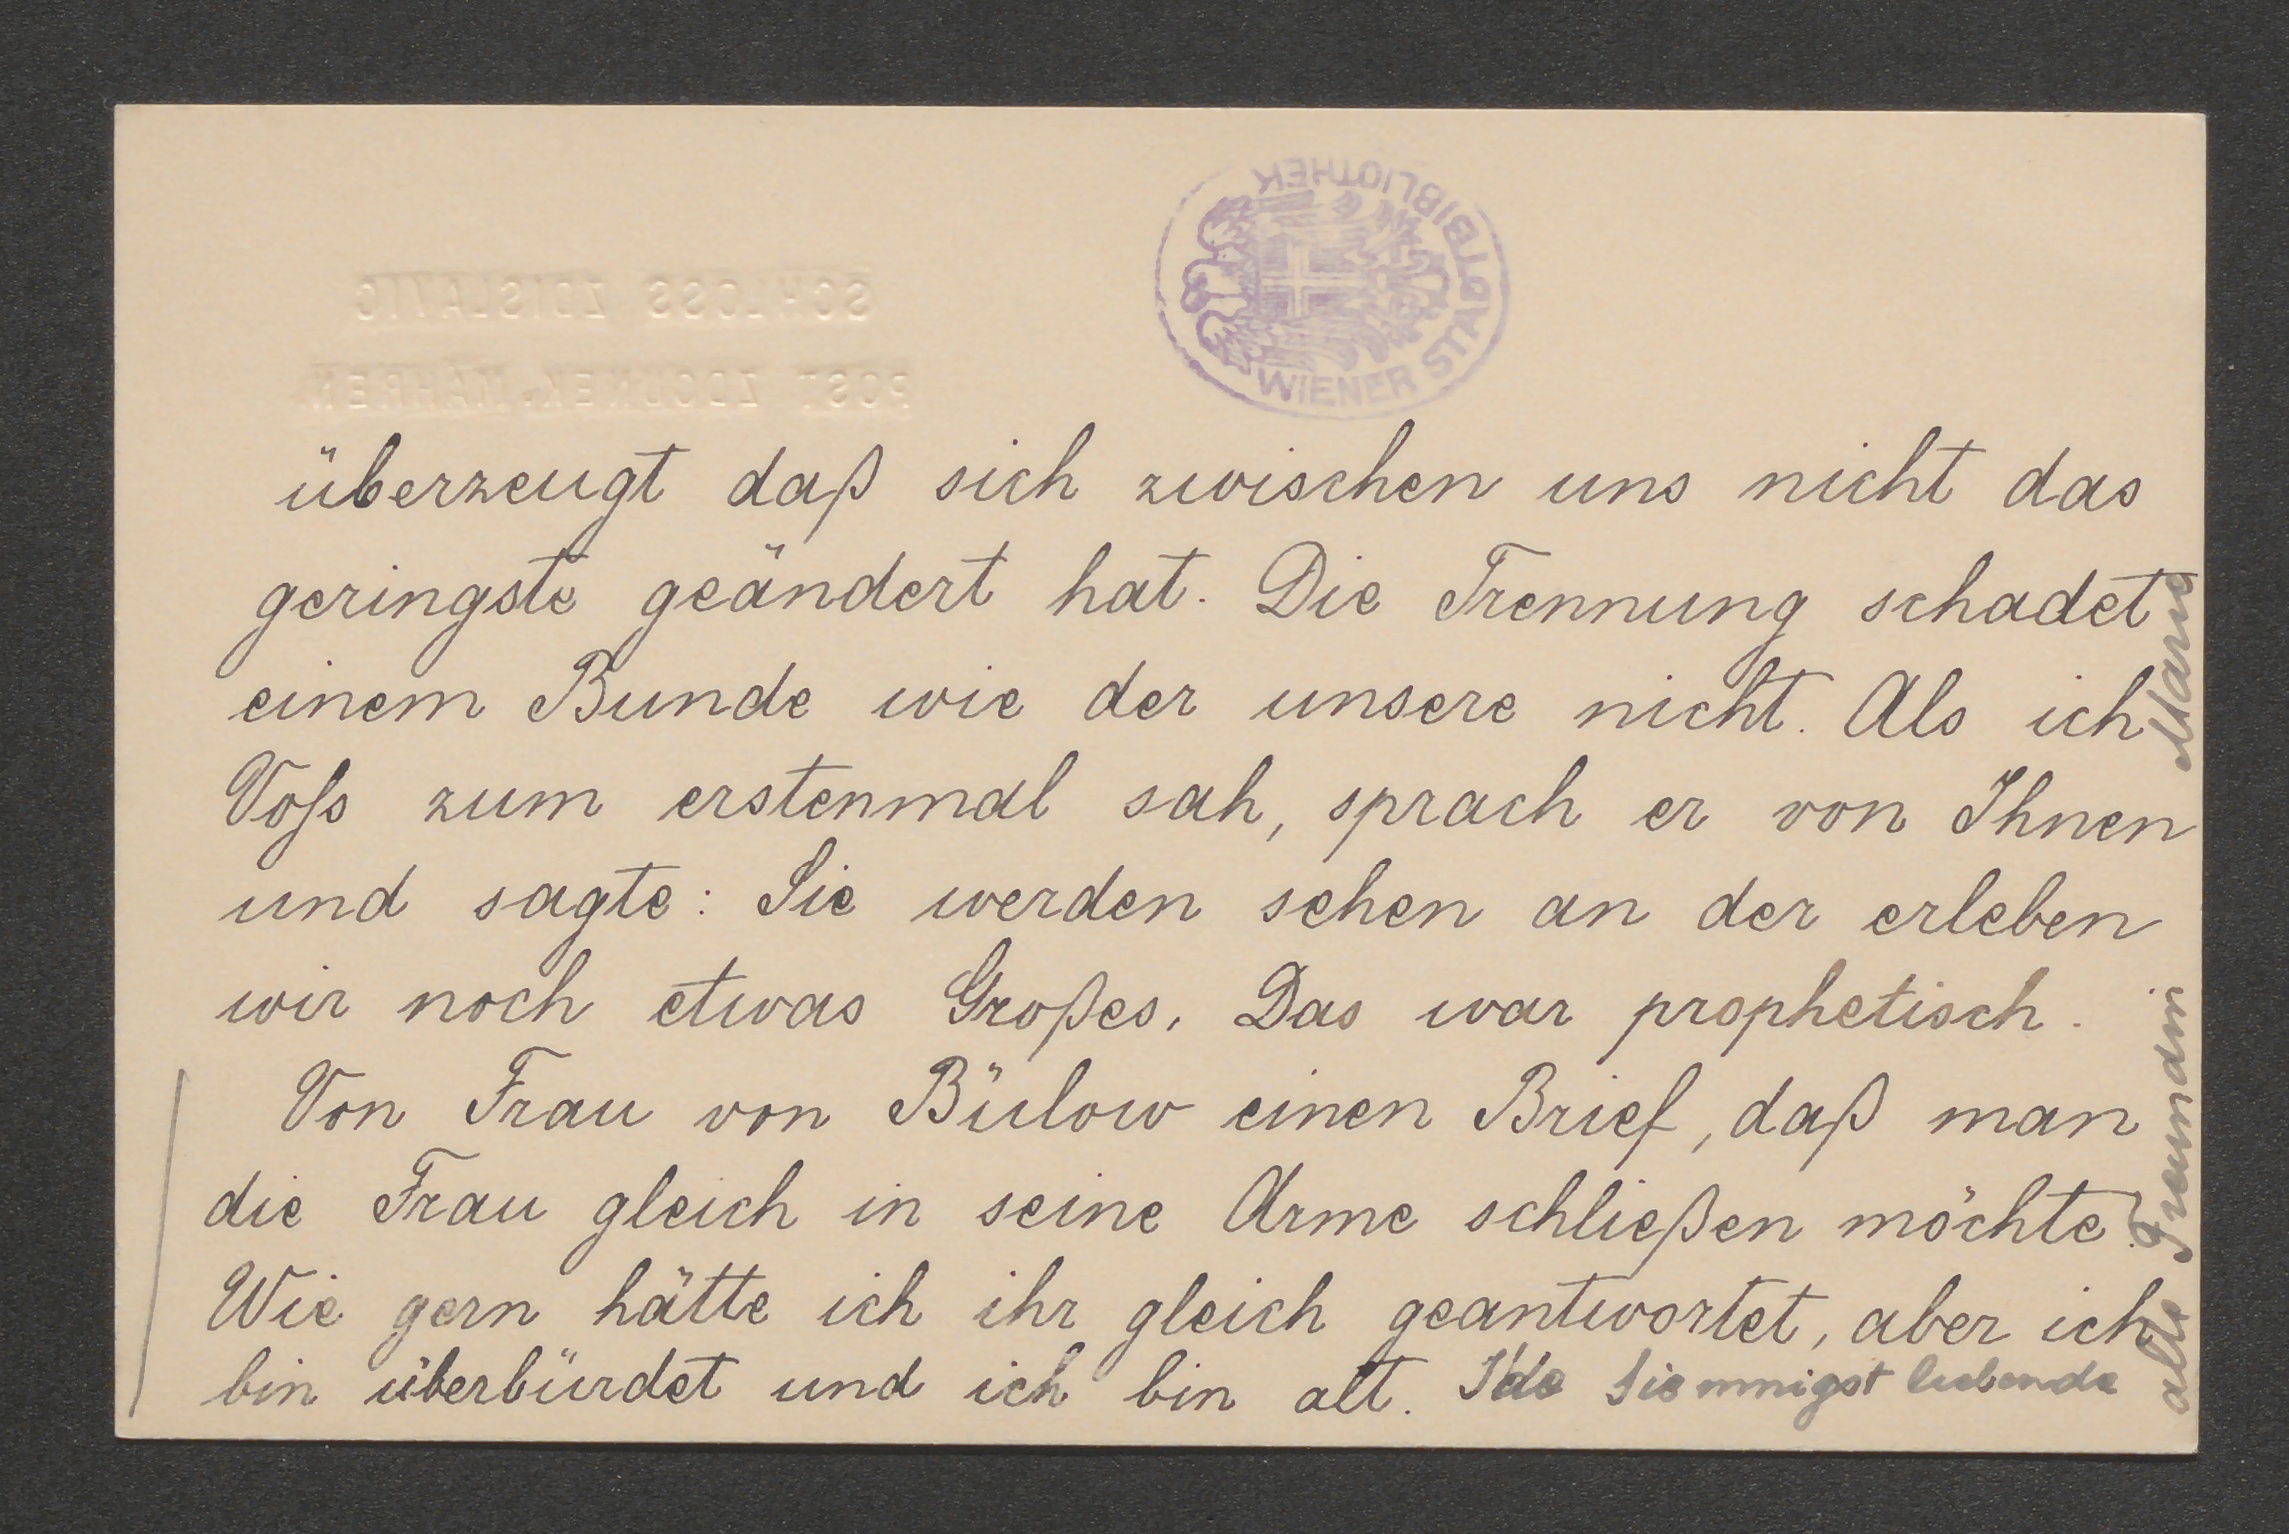 SCHLOSS ZDISLAVIC
POST ZDOUNEK. MÄHREN.
WIENER STADTBIBLIOTHEK
überzeugt daß sich zwischen uns nicht das
geringste geändert hat. Die Trennung schadet
einem Bunde wie der unsere nicht. Als ich
Voſs zum erstenmal sah, sprach er von Ihnen
und sagte: Sie werden sehen an der erleben
wir noch etwas Großes. Das war prophetisch.
Von Frau von Bülow einen Brief, daß man
die Frau gleich in seine Arme schließen möchte.
Wie gern hätte ich ihr gleich geantwortet, aber ich
bin überbürdet und ich bin alt. Sie innigst liebende
alte Freundin Marie